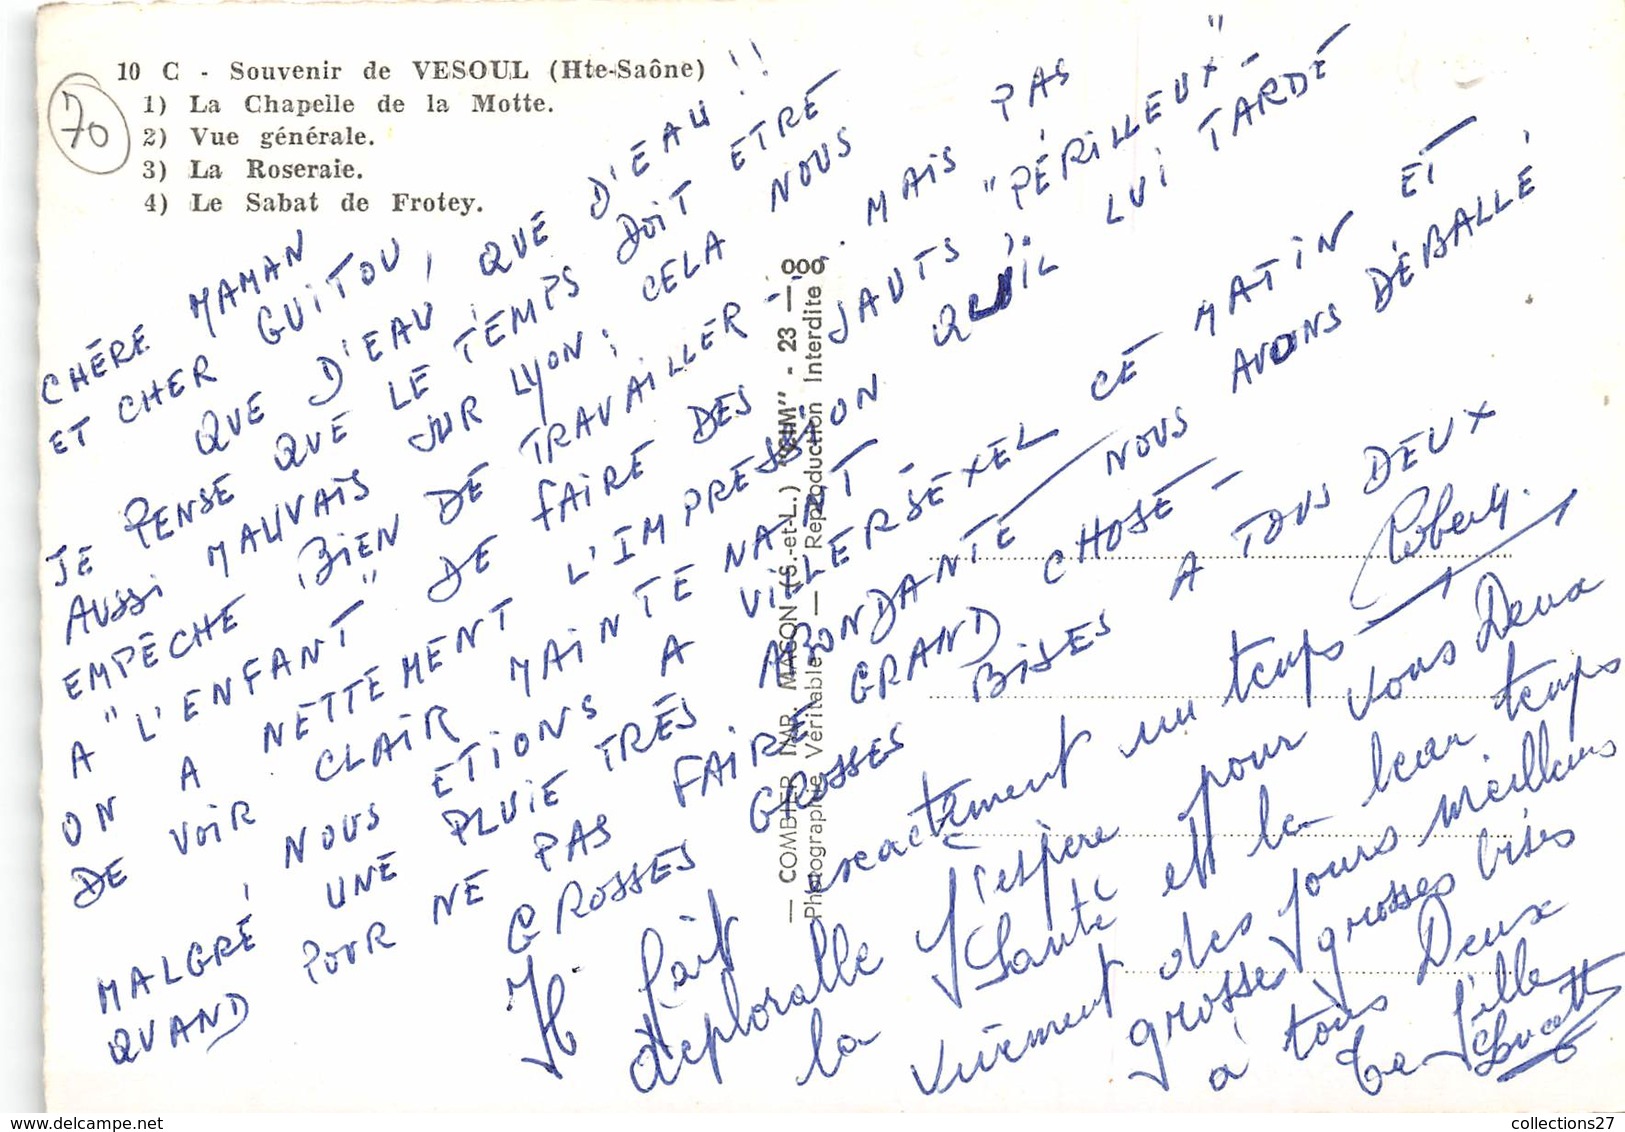 10 C - Souvenir de VESOUL (Hte-Saône)
1) La Chapelle de la Motte.
2) Vue générale.
3) La Roseraie.
4) Le Sabat de Frotey.
70
CHÈRE MAMAN
ET CHER GUITOU,
QUE D'EAU, QUE D'EAU !!
JE PENSE QUE LE TEMPS DOIT ETRE
AUSSI MAUVAIS SUR LYON; CELA NOUS
EMPÊCHE BIEN DE TRAVAILLER - MAIS PAS
A "L'ENFANT" DE FAIRE DES SAUTS "PÉRILLEUX" -
ON A NETTEMENT L'IMPRESSION QU'IL LUI TARDE
DE VOIR CLAIR MAINTENANT -
MALGRÉ, NOUS ETIONS A VILLERSEXEL CE MATIN ET
QUAND UNE PLUIE TRÈS ABONDANTE NOUS AVONS DÉBALLÉ
POUR NE PAS FAIRE GRAND CHOSE -
GROSSES GROSSES BISES A TOUS DEUX
Il fait exactement un temps
déplorable J'espère pour vous Deux
la Santé est le beau temps
vivement des jours meilleurs
grosses grosses bises
à tous Deux
Ta fille
— COMBIER IMP. MACON (S.-et-L.) "CIM" - 23 —
Photographie Véritable — Reproduction Interdite
collections27